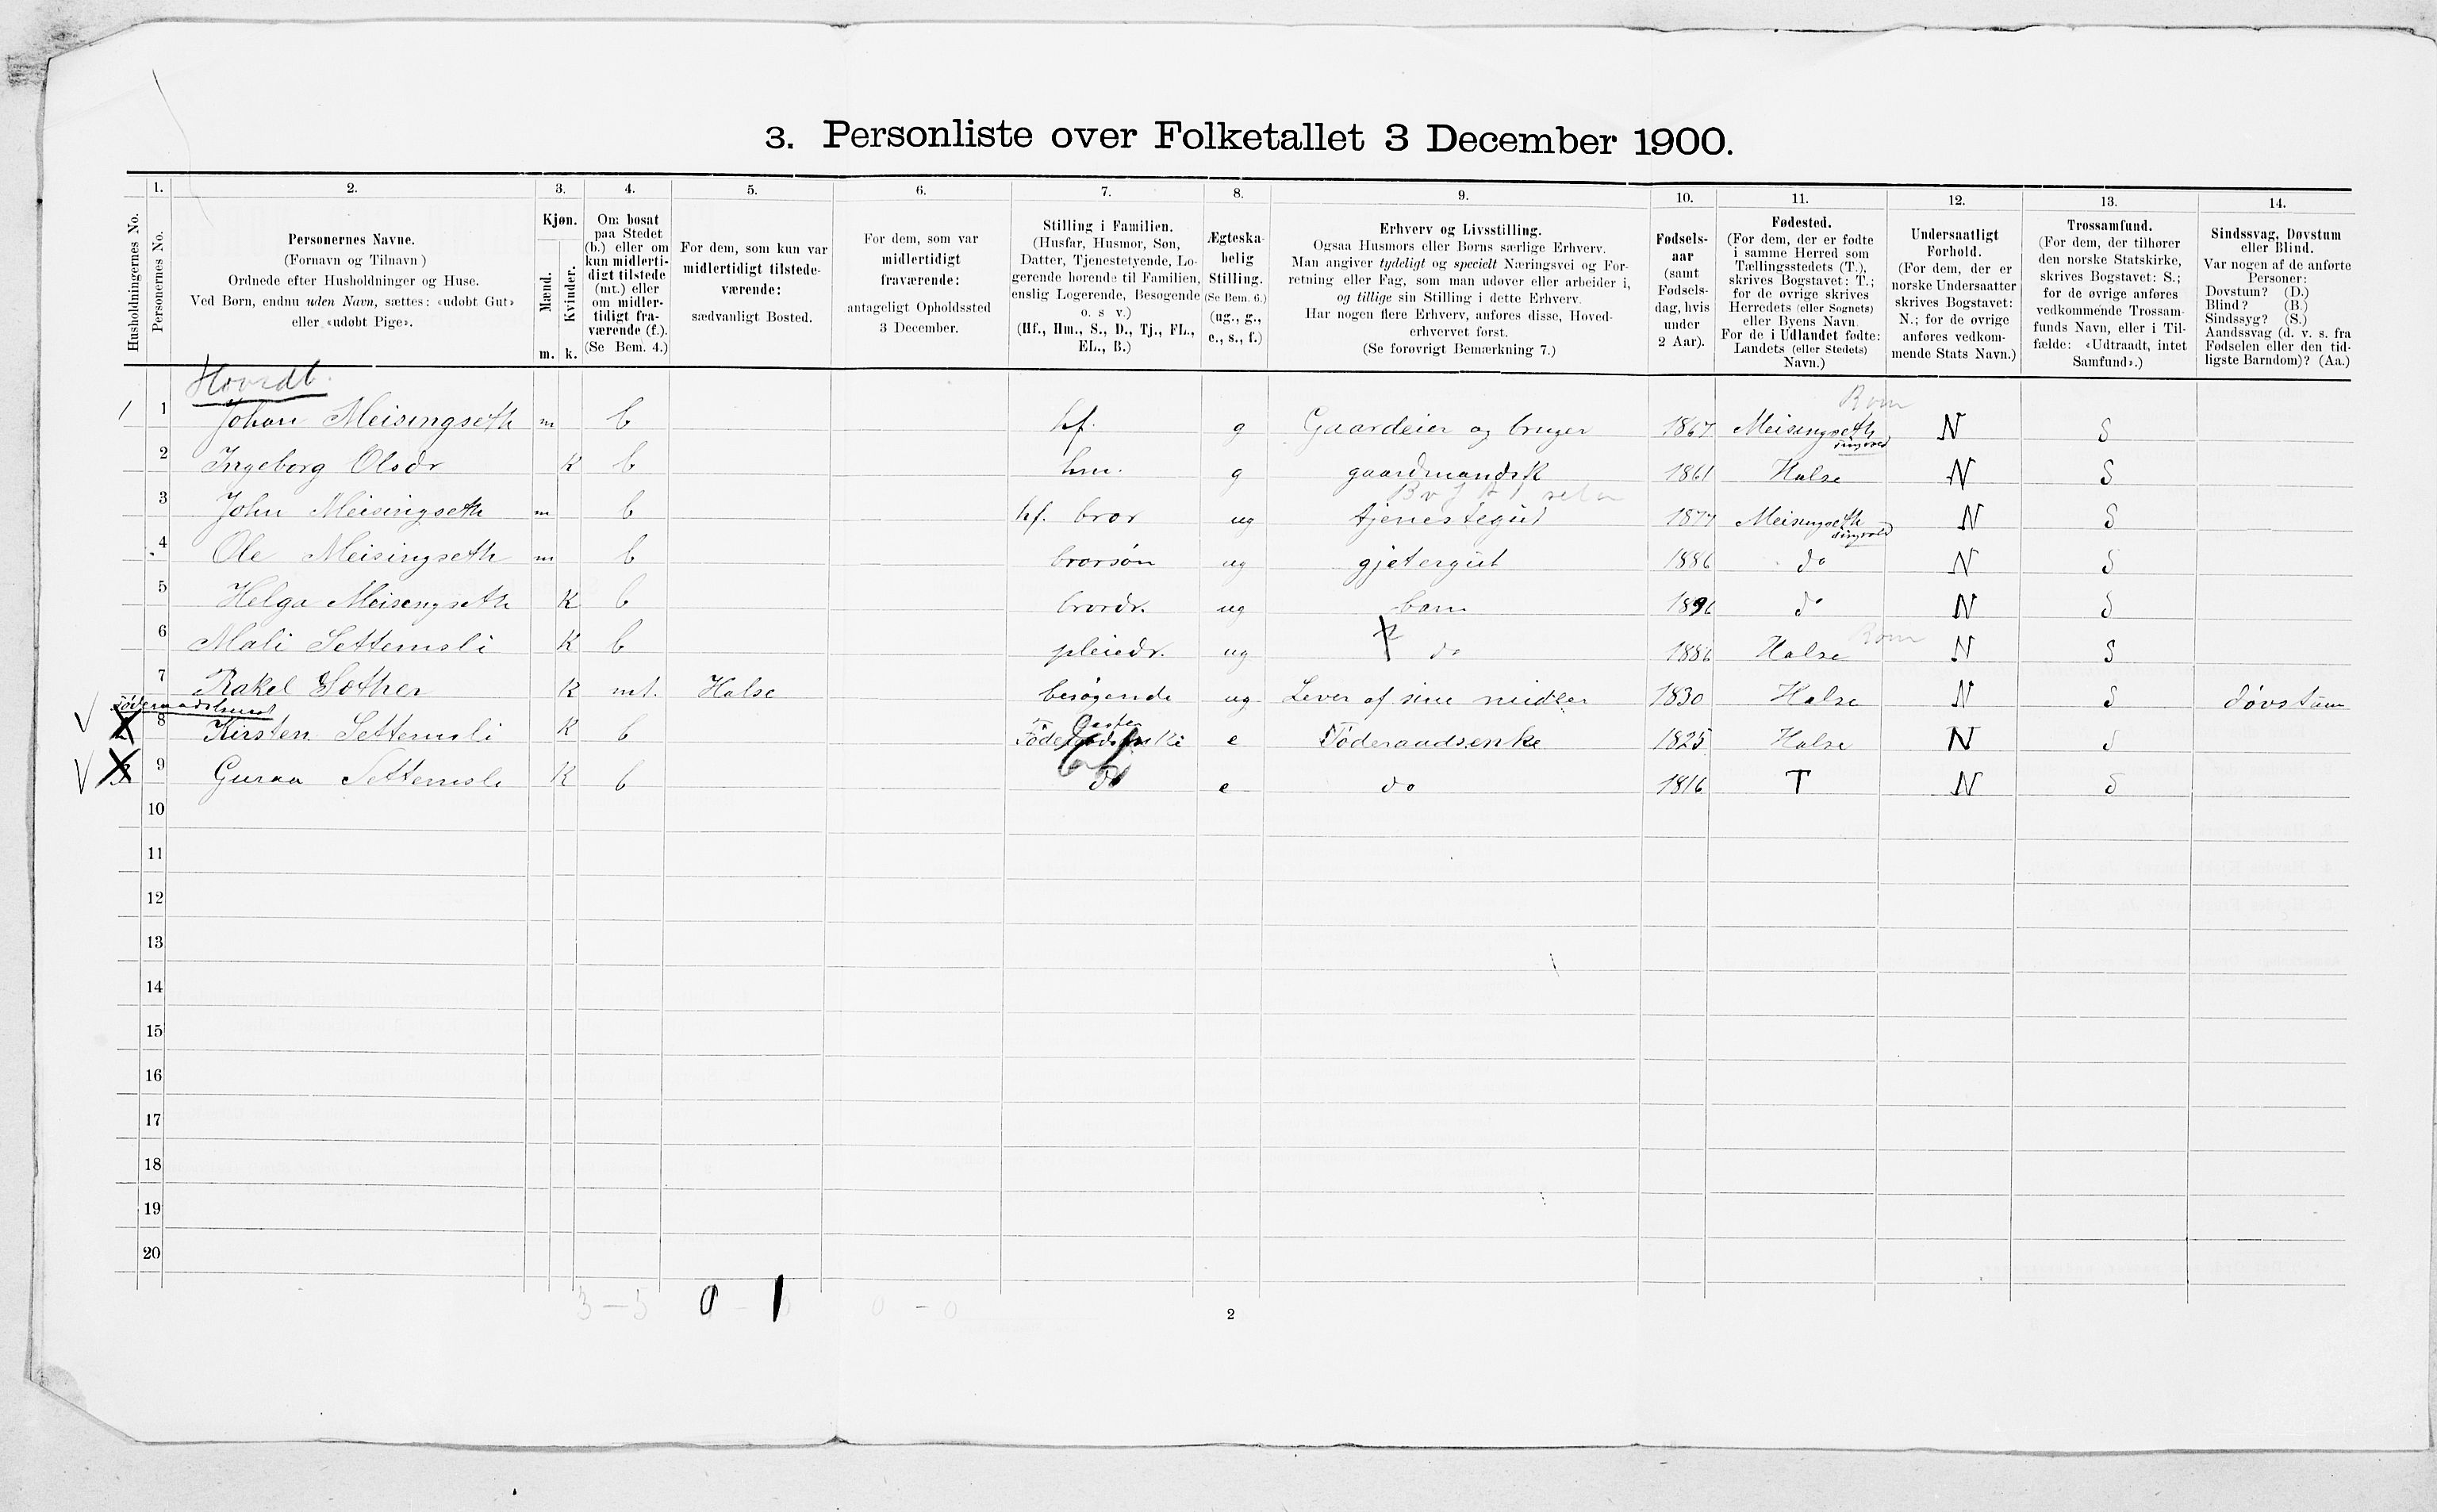 3. Personliste over Folketallet 3 December 1900.
1. 2. 3. 4. 5. 6. 7. 8. 9. 10. 11. 12. 13. 14.
Husholdningernes No.
Personernes No.
Personernes Navne.
(Fornavn og Tilnavn)
Ordnede efter Husholdninger og Huse.
Ved Børn, endnu uden Navn, sættes: «udøbt Gut»
eller «udøbt Pige».
Kjøn.
Mænd.
Kvinder.
m. k.
Om bosat
paa Stedet
(b.) eller om
kun midlerti-
digt tilstede
(mt.) eller
om midler-
tidigt fra-
værende (f.).
(Se Bem. 4.)
For dem, som kun var
midlertidigt tilstede-
værende:
sædvanligt Bosted.
For dem, som var
midlertidigt
fraværende:
antageligt Opholdssted
3 December.
Stilling i Familien.
(Husfar, Husmor, Søn,
Datter, Tjenestetyende, Lo-
gerende hørende til Familien,
enslig Logerende, Besøgende
o. s v.)
(Hf., Hm., S., D., Tj., FL.,
EL., B.)
Ægteska-
belig
Stilling.
(Se Bem. 6.)
(ug., g.,
e., s., f.)
Erhverv og Livsstilling.
Ogsaa Husmors eller Børns særlige Erhverv.
Man angiver tydeligt og specielt Næringsvei og For-
retning eller Fag, som man udøver eller arbeider i,
og tillige sin Stilling i dette Erhverv.
Har nogen flere Erhverv, anføres disse, Hoved-
erhvervet først.
(Se forøvrigt Bemærkning 7.)
Fødsels-
aar
(samt
Fødsels-
dag, hvis
under
2 Aar).
Fødested.
(For dem, der er fødte
i samme Herred som
Tællingsstedets (T.),
skrives Bogstavet: T.;
for de øvrige skrives
Herredets (eller Sognets)
eller Byens Navn.
For de i Udlandet fødte:
Landets (eller Stedets)
Navn.)
Undersaatligt
Forhold.
(For dem, der er
norske Undersaatter
skrives Bogstavet:
N.; for de øvrige
anføres vedkom-
mende Stats Navn.)
Trossamfund.
(For dem, der tilhører
den norske Statskirke,
skrives Bogstavet: S.;
for de øvrige anføres
vedkommende Trossam-
funds Navn, eller i Til-
fælde: «Udtraadt, intet
Samfund».)
Sindssvag, Døvstum
eller Blind.
Var nogen af de anførte
Personer:
Døvstum? (D.)
Blind? (B.)
Sindssyg? (S.)
Aandssvag (d. v. s. fra
Fødselen eller den tid-
ligste Barndom)? (Aa.)
Rom
1 1 Johan Meisingseth m b hf. g Gaardeier og bruger 1867 Meisingseth N S
tingvold
2 Ingeborg Olsdr K b hm. g gaardmandsk 1861 Halse N S
3 John Meisingseth m b hf. bror ug tjenestegut 1877 Meisingseth N S
tingvold
4 Ole Meisingseth m b brorsøn ug gjetergut 1886 do N S
5 Helga Meisingseth K b brordr. ug barn 1896 do N S
6 Mali Settemsli K b pleiedr. ug do 1886 Halse Rom N S
7 Rakel Sæther K mt. Halse besøgende ug Lever af sine midler 1830 Halse N S døvstum
Føderaadshuset
8 Kirsten Settemsli K b Føderaadsenke e Føderaadsenke 1825 Halse N S
9 Guraa Settemsli K b do e do 1816 T N S
10
11
12
13
14
15
16
17
18
19
20
3 – 5 0 - 1 0 - 0
2